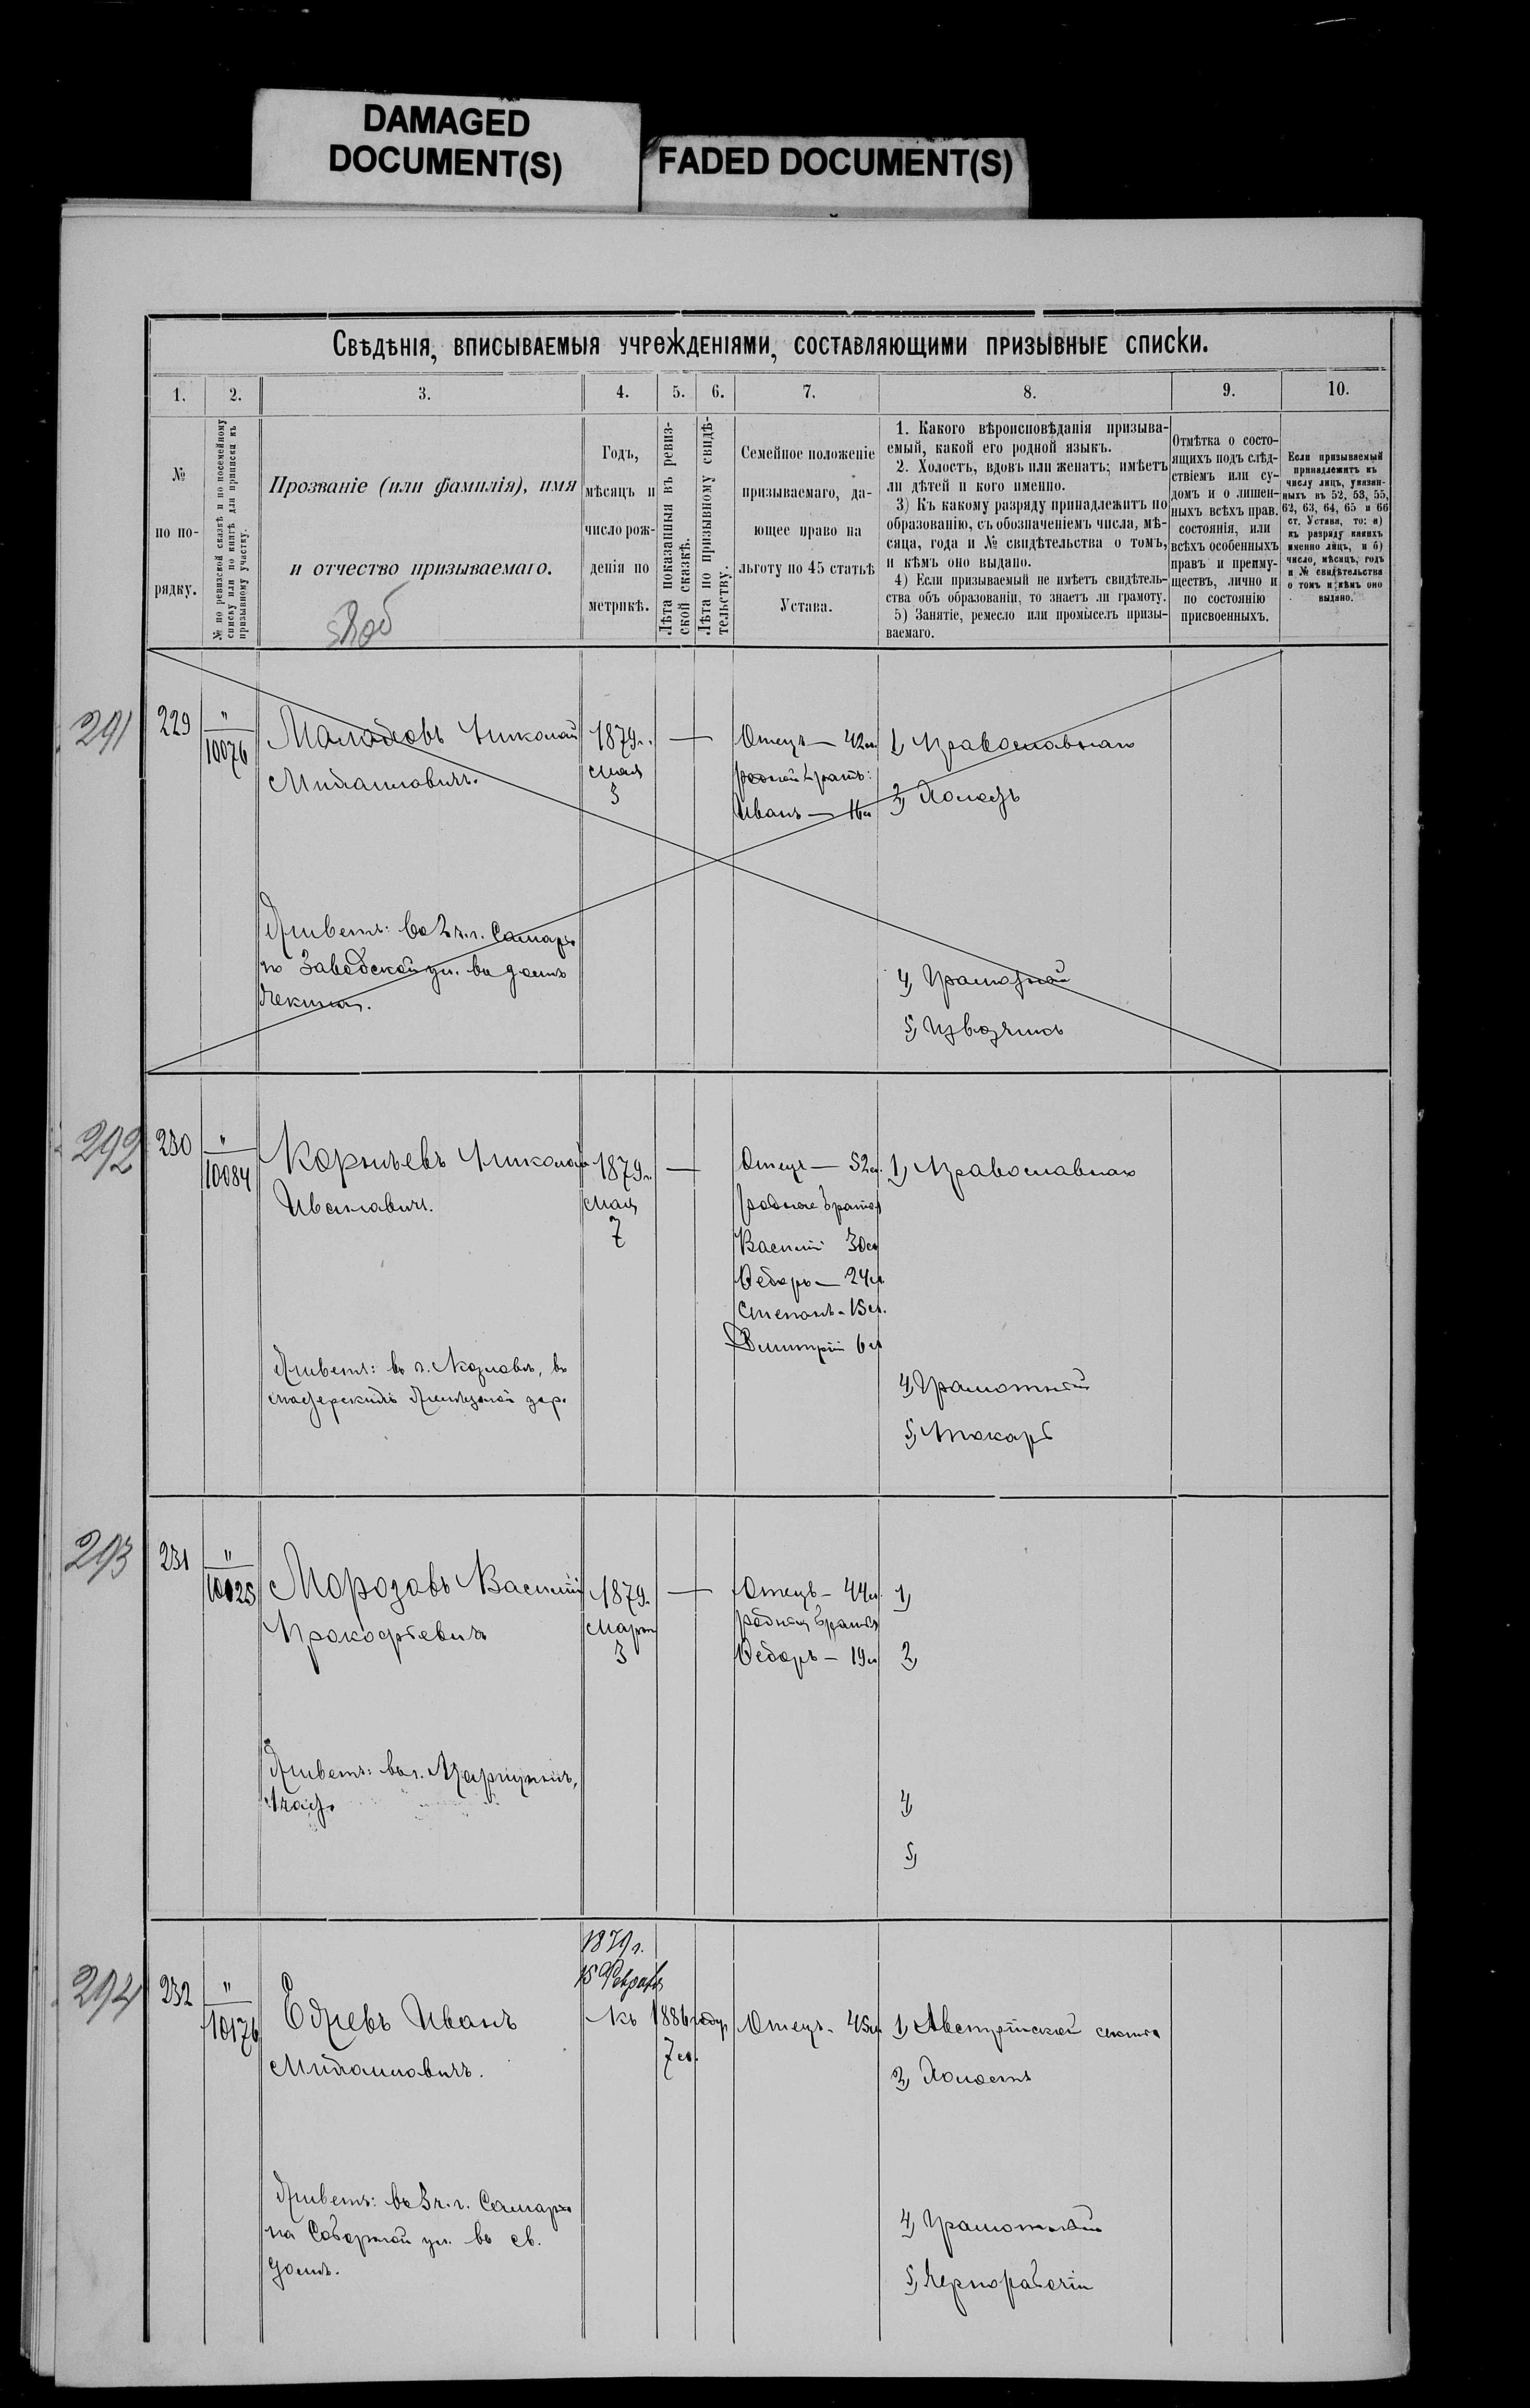 DAMAGED
DOCUMENT(S)
FADED DOCUMENT(S)
Свѣдѣнія, вписываемыя учрежденіями, составляющими призывные списки.
1.
2.
3.
4.
5.
6.
7.
8.
9.
10.
№
по по-
рядку.
№ по ревизской сказкѣ и по посемейному
списку или по книгѣ для приписки къ
призывному участку.
Прозваніе (или фамилія), имя
и отчество призываемаго.
Годъ,
мѣсяцъ и
число рож-
денія по
метрикѣ.
Лѣта показанныя въ ревиз-
ской сказкѣ.
Лѣта по призывному свидѣ-
тельству.
Семейное положеніе
призываемаго, да-
ющее право на
льготу по 45 статьѣ
Устава.
1. Какого вѣроисповѣданія призыва-
емый, какой его родной языкъ.
2. Холостъ, вдовъ или женатъ; имѣетъ
ли дѣтей и кого именно.
3) Къ какому разряду принадлежитъ по
образованію, съ обозначеніемъ числа, мѣ-
сяца, года и № свидѣтельства о томъ,
и кѣмъ оно выдано.
4) Если призываемый не имѣетъ свидѣтель-
ства объ образованіи, то знаетъ ли грамоту.
5) Занятіе, ремесло или промыселъ призы-
ваемаго.
Отмѣтка о состо-
ящихъ подъ слѣд-
ствіемъ или су-
домъ и о лишен-
ныхъ всѣхъ прав.
состоянія, или
всѣхъ особенныхъ
правъ и преиму-
ществъ, лично и
по состоянію
присвоенныхъ.
Если призываемый
принадлежитъ къ
числу лицъ, указан-
ныхъ въ 52, 53, 55,
62, 63, 64, 65 и 66
ст. Устава, то: а)
къ разряду какихъ
именно лицъ, и б)
число, мѣсяцъ, годъ
и № свидѣтельства
о томъ и кѣмъ оно
выдано.
291
229
"
10076
Николай
Михаиловичъ.
1879 г.
мая
3
Отецъ — 42 л.
родной братъ:
Иванъ — 16 л
1, Православнаго
2, Холостъ
Живетъ: во 2 ч. г. Самары
по Заводской ул. въ домѣ
4, Грамотный
5, Извозчикъ
292
230
"
10084
Корнѣевъ Николай
Ивановичъ.
1879 г.
мая
7
—
Отецъ — 52 л.
родные братья
Василій 30 л
Ѳедоръ — 24 л.
Степанъ - 15 л.
Дмитрій 6 л
1, Православнаго
Живетъ: въ г. Козловѣ, въ
мастерскихъ Желѣзной дор.
4, Грамотный
5, Токарь
293
231
"
10025
Морозовъ Василій
Прокофьевичъ
1879 г.
марта
3
—
Отецъ — 44 л.
родной братъ
Ѳедоръ — 19 л
1,
2,
Живетъ: въ г. Царицынѣ,
1 част.
4,
5,
294
232
"
10176
Иванъ
Михаиловичъ.
1879 г.
15 Февраля
Къ 1886 году
7 л.
Отецъ - 45 л.
1, Австрійской секты
2, Холостъ
Живетъ: въ 3 ч. г. Самары
на Соборной ул. въ св.
домѣ.
4, Грамотный
5, Чернорабочій